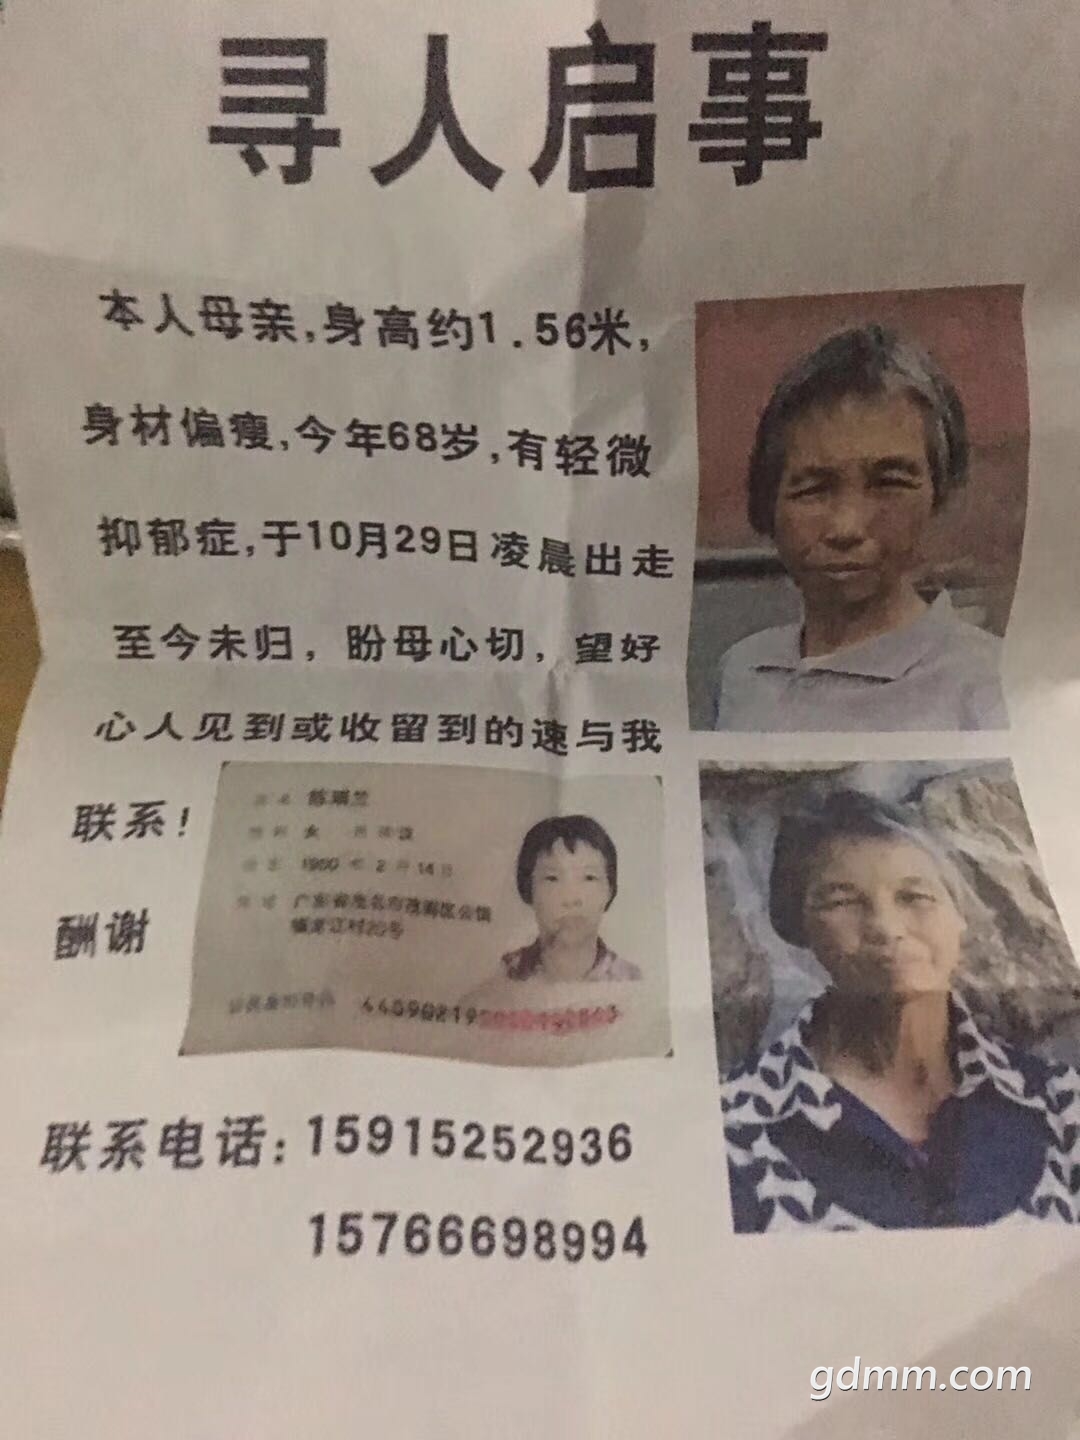 寻人启事
本人母亲,身高约1.56米,
身材偏瘦,今年68岁,有轻微
抑郁症,于10月29日凌晨出走
至今未归，盼母心切，望好
心人见到或收留到的速与我
联系!
酬谢
陈瑞兰
女 汉
年 2 月 14 日
广东省茂名市茂港区公馆
村20号
公民身份号码 44090219
联系电话: 15915252936
15766698994
gdmm.com